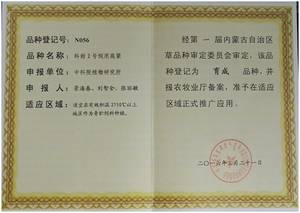 品种登记号: N056
品种名称: 科纺2号饲用高粱
申报单位: 中科院植物研究所
申报人: 景海春、刘智全、张丽敏
适应区域: 适宜在有效积温2350℃以上
地区作为青贮饲料种植。
经第一届内蒙古自治区
草品种审定委员会审定,该品
种登记为 育成 品种,并
报农牧业厅备案,准予在适应
区域正式推广应用。